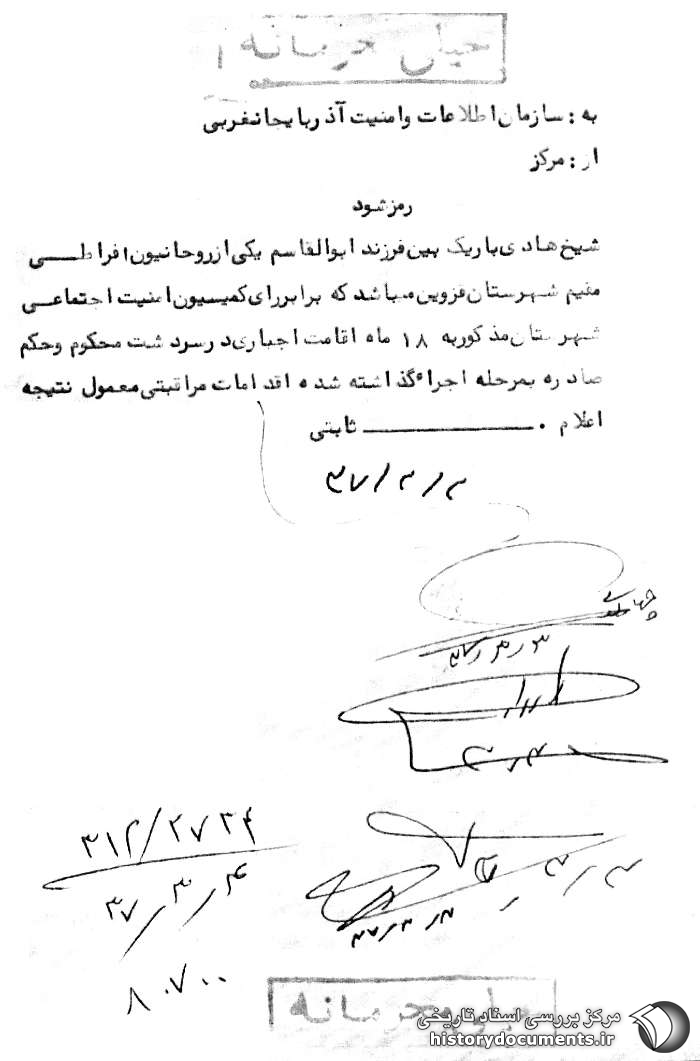 خیلی محرمانه
به : سازمان اطلاعات وامنیت آذربایجانغربی
از : مرکز
رمزشود
شیخ هادی باریک بین فرزند ابوالقاسم یکی ازروحانیون افراطی
مقیم شهرستان قزوین میباشد که برابررای کمیسیون امنیت اجتماعی
شهرستان مذکوربه ۱۸ ماه اقامت اجباری درسردشت محکوم وحکم
صادره بمرحله اجراء گذاشته شده اقدامات مراقبتی معمول نتیجه
اعلام . ثابتی
۳۷/۳/۳
۳۷/۳/۳
۳/۳
۳/۳
۳۷/۳/۳
۳۱۲/۲۷۳۴
۳۷/۳/۴
۸۰۷۰۰
خیلی محرمانه
مرکز بررسی اسناد تاریخی
historydocuments.ir